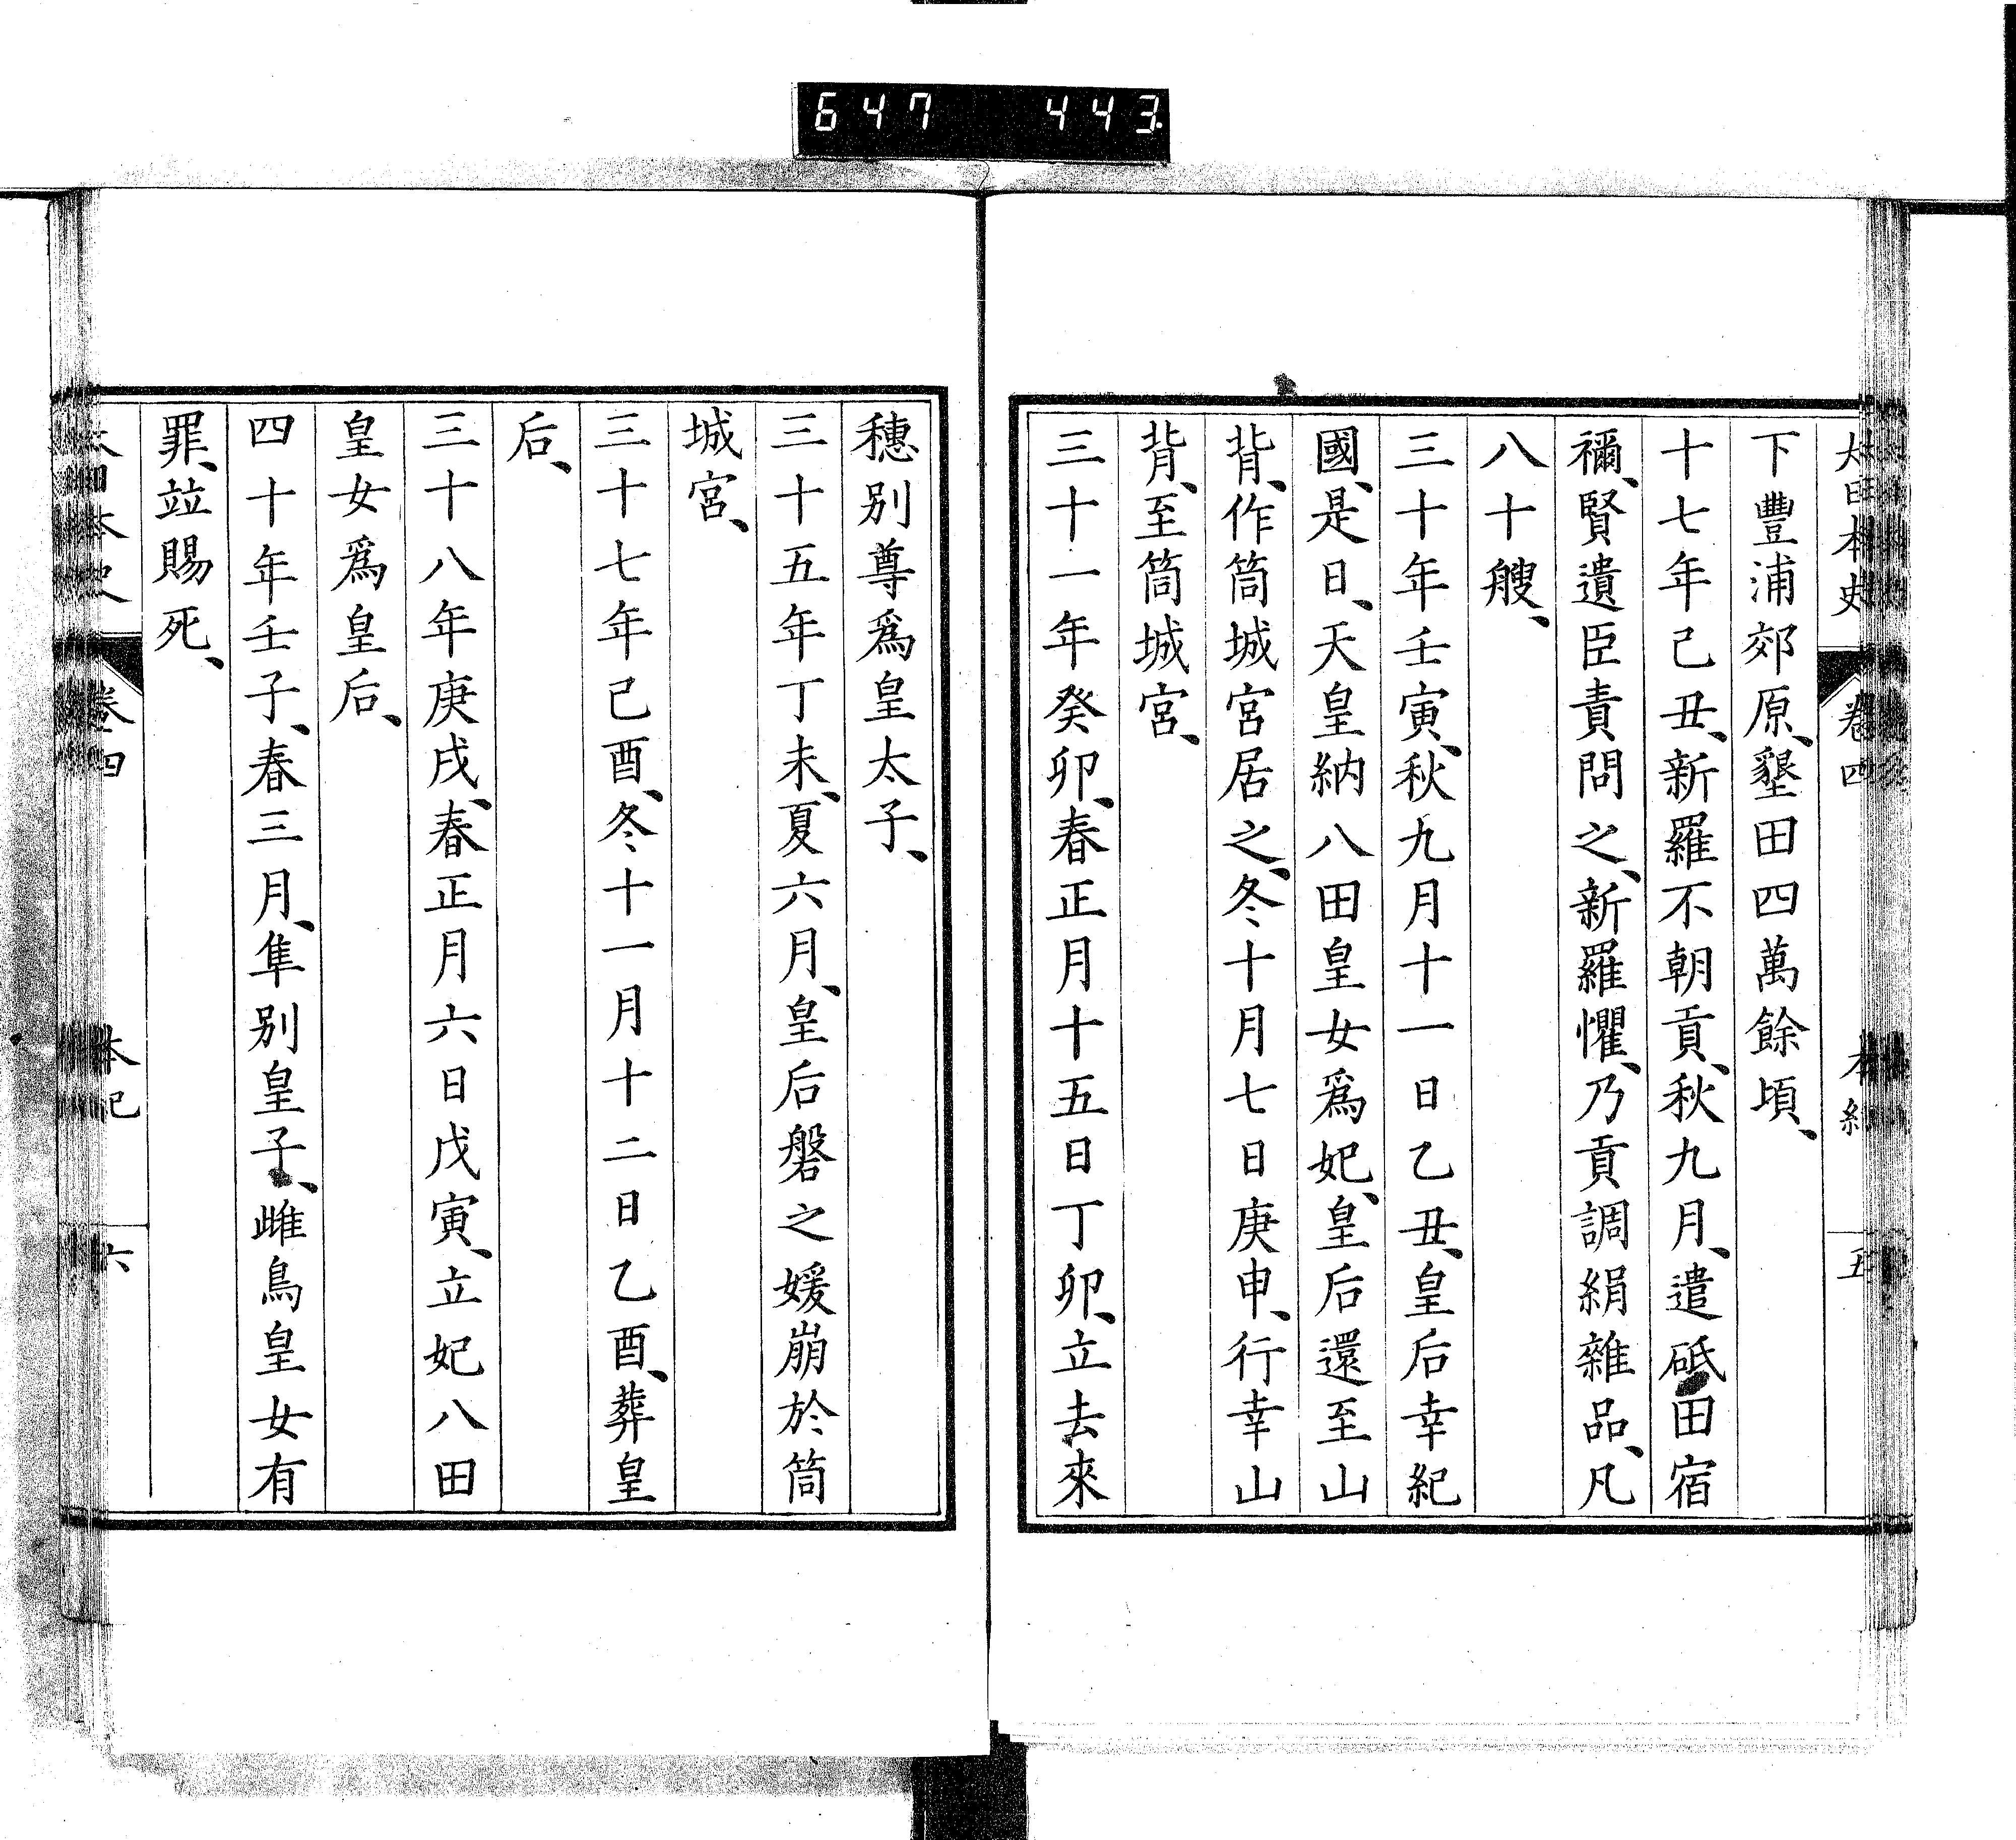 647 443
大日本史 卷四 本紀 五
下豐浦郊原、墾田四萬餘頃、
十七年己丑、新羅不朝貢、秋九月、遣砥田宿
禰、賢遺臣責問之、新羅懼、乃貢調絹雜品、凡
八十艘、
三十年壬寅、秋九月十一日乙丑、皇后幸紀
國、是日、天皇納八田皇女爲妃、皇后還至山
背、作筒城宮居之、冬十月七日庚申、行幸山
背、至筒城宮、
三十一年癸卯、春正月十五日丁卯、立去來
穗別尊爲皇太子、
三十五年丁未、夏六月、皇后磐之媛崩於筒
城宮、
三十七年己酉、冬十一月十二日乙酉、葬皇
后、
三十八年庚戌、春正月六日戊寅、立妃八田
皇女爲皇后、
四十年壬子、春三月、隼別皇子、雌鳥皇女有
罪、竝賜死、
大日本史 卷四 本紀 六